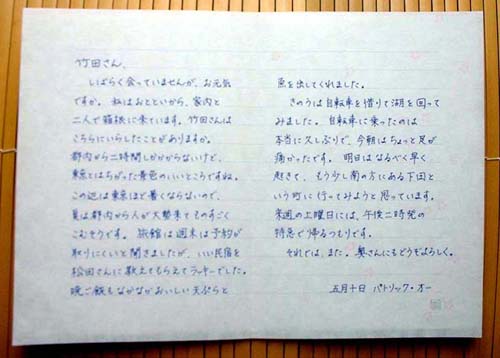 竹田さん、
しばらく会っていませんが、お元気
ですか。私はおとといから、家内と
二人で箱根に来ています。竹田さんは
こちらにいらしたことがありますか。
都内から二時間しかかからないけど、
東京とはちがった景色のいいところですね。
この辺は東京ほど暑くならないので、
夏は都内から人が大勢来てものすごく
こむそうです。旅館は週末は予約が
取りにくいと聞きましたが、いい民宿を
松田さんに教えてもらえてラッキーでした。
晩ご飯もなかなかおいしい天ぷらと
魚を出してくれました。
きのうは自転車を借りて湖を回って
みました。自転車に乗ったのは
本当に久しぶりで、今朝はちょっと足が
痛かったです。明日はなるべく早く
起きて、もう少し南の方にある下田と
いう町に行ってみようと思っています。
来週の土曜日には、午後二時発の
特急で帰るつもりです。
それでは、また。奥さんにもどうぞよろしく。
五月十日 パトリック・オー